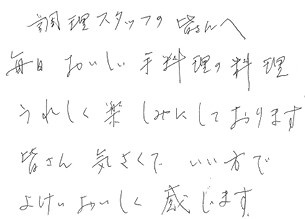 調理スタッフの皆さんへ
毎日おいしい手料理の料理
うれしく楽しみにしております
皆さん気さくでいい方で
よけいおいしく感じます。